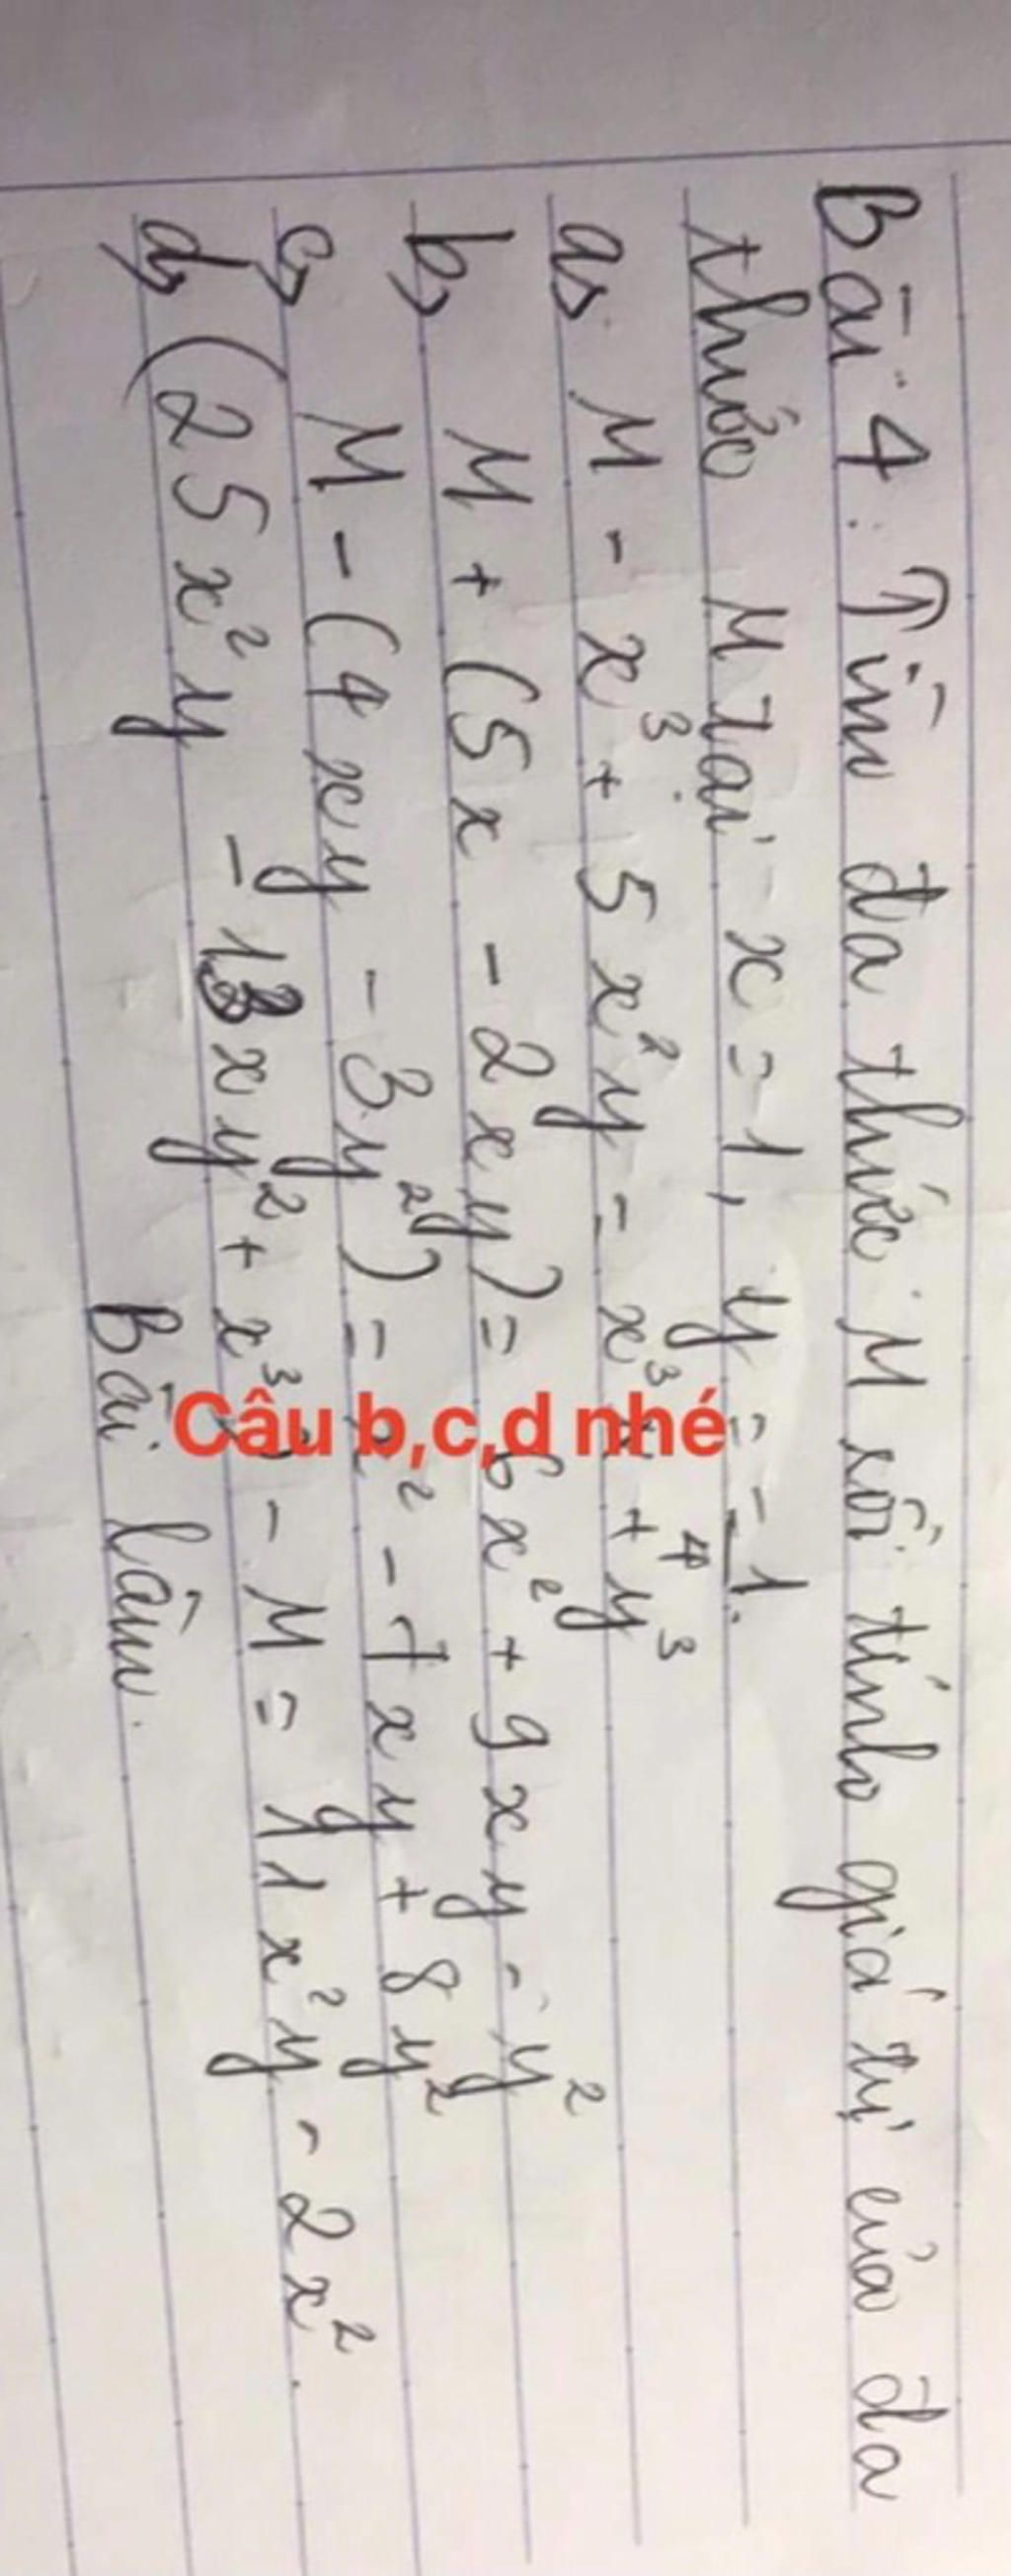 Bài 4: Tìm đa thức M rồi tính giá trị của đa
thức M tại x = 1, y = -1.
a, M - x³ + 5x²y = x³ + y³
b, M + (5x - 2xy) = 6x² + 9xy - y²
c, M - (4xy - 3y²) = ² - 7xy + 8y²
d, (25x²y - 13xy² + x³ - M = 11x²y - 2x².
Bài làm.
Câu b,c,d nhé